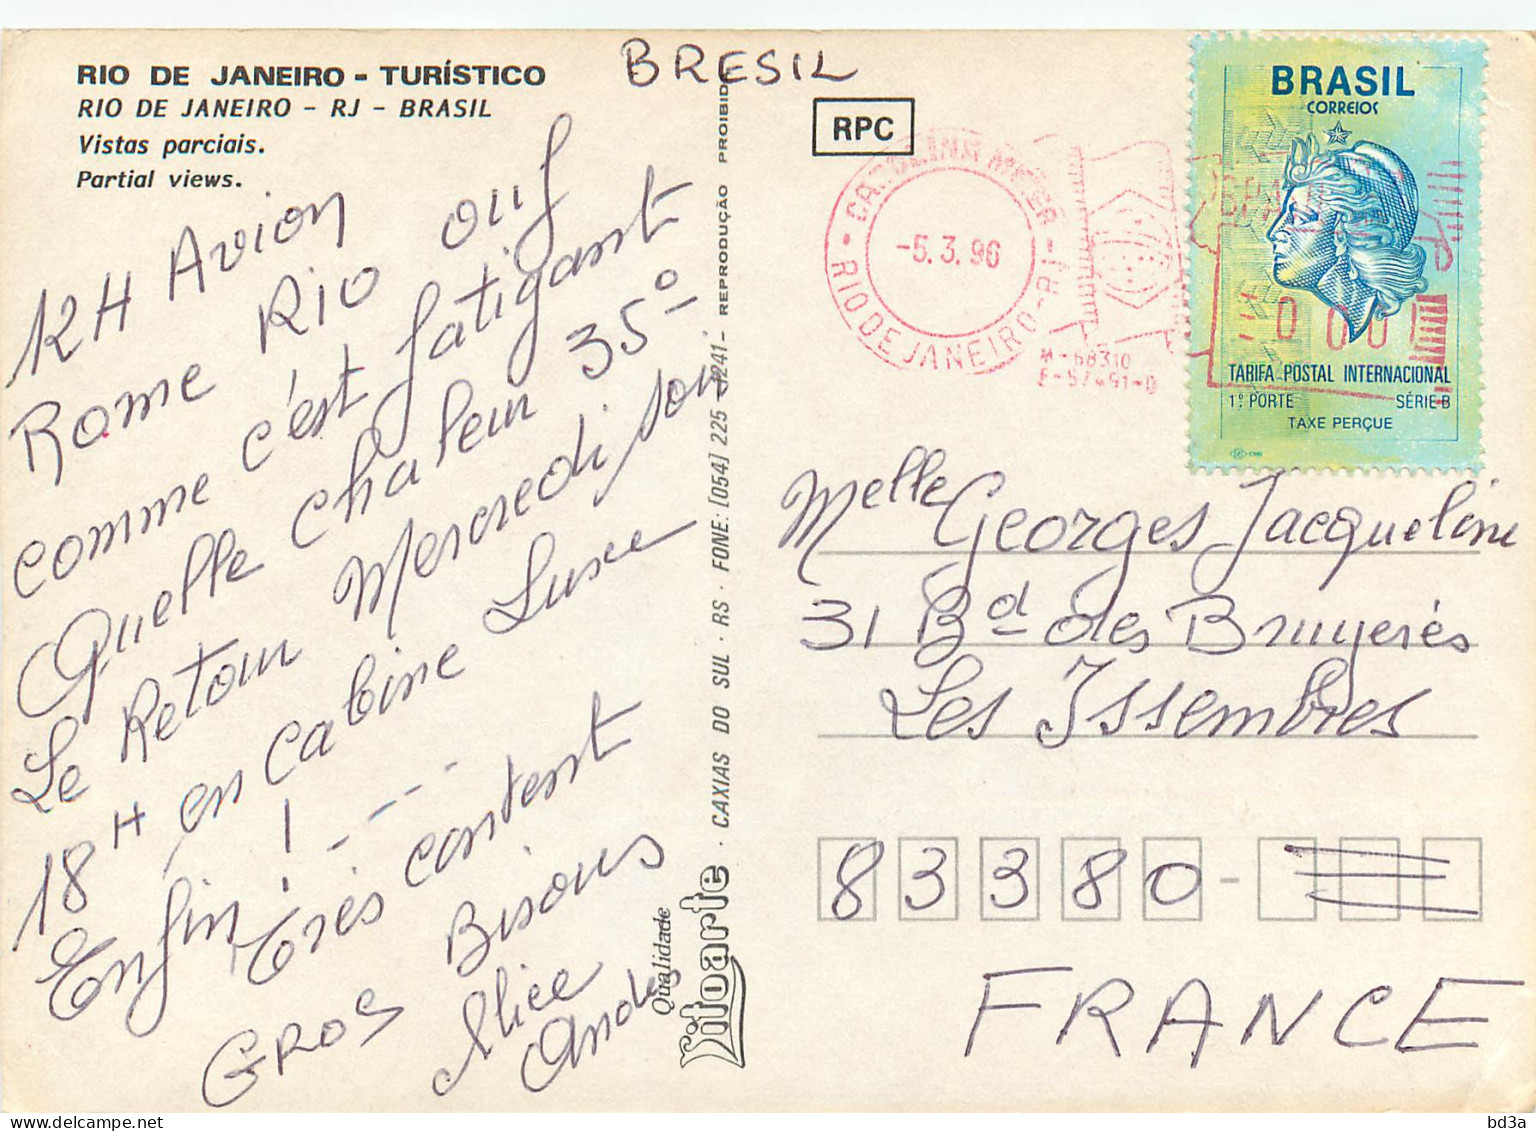 RIO DE JANEIRO - TURÍSTICO
RIO DE JANEIRO - RJ - BRASIL
Vistas parciais.
Partial views.
BRESIL
RPC
BRASIL
CORREIOS
TARIFA POSTAL INTERNACIONAL
1º PORTE SÉRIE B
TAXE PERÇUE
-5.3.96
RIO DE JANEIRO - RJ
12H Avion
Rome Rio ouf
comme c'est fatigant
Quelle chaleur 35º
Le Retour Mercredi soir
18H en cabine Luxe
Enfin! ! - - - -
très content
Gros Bisous
Alice
André
Melle Georges Jacqueline
31 Bd des Bruyerès
Les Issembres
83380 -
FRANCE
Qualidade
Litoarte · CAXIAS DO SUL · RS · FONE: [054] 225 - REPRODUÇÃO PROIBIDA
bd3a